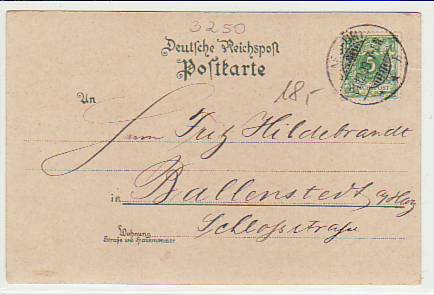 3250
Deutsche Reichspost
Postkarte
18,-
5
An
Herrn Fritz Hildebrandt
in Ballenstedt a/Harz
Schloßstraße
Wohnung
Straße und Hausnummer